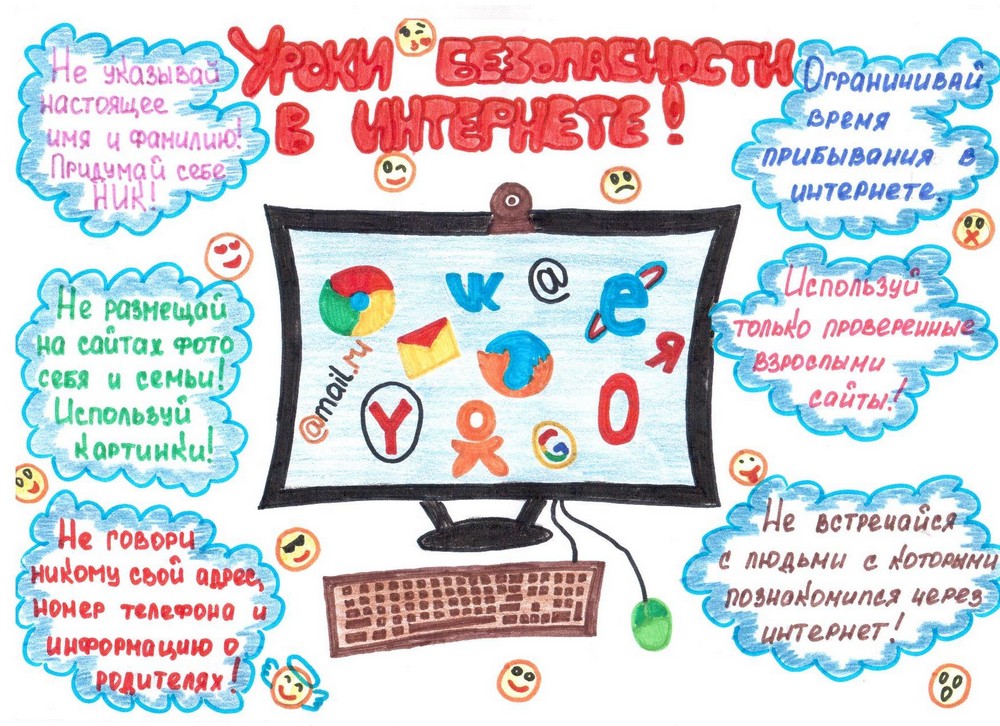 УРОКИ БЕЗОПАСНОСТИ
В ИНТЕРНЕТЕ!
Не указывай
настоящее
имя и фамилию!
Придумай себе
НИК!
Не размещай
на сайтах фото
себя и семьи!
Используй
картинки!
Не говори
никому свой адрес,
номер телефона и
информацию о
родителях!
VK
@
e
Я
@mail.ru
Y
G
O
Ограничивай
время
прибывания в
интернете.
Используй
только проверенные
взрослыми
сайты!
Не встречайся
с людьми с которыми
познакомился через
интернет!